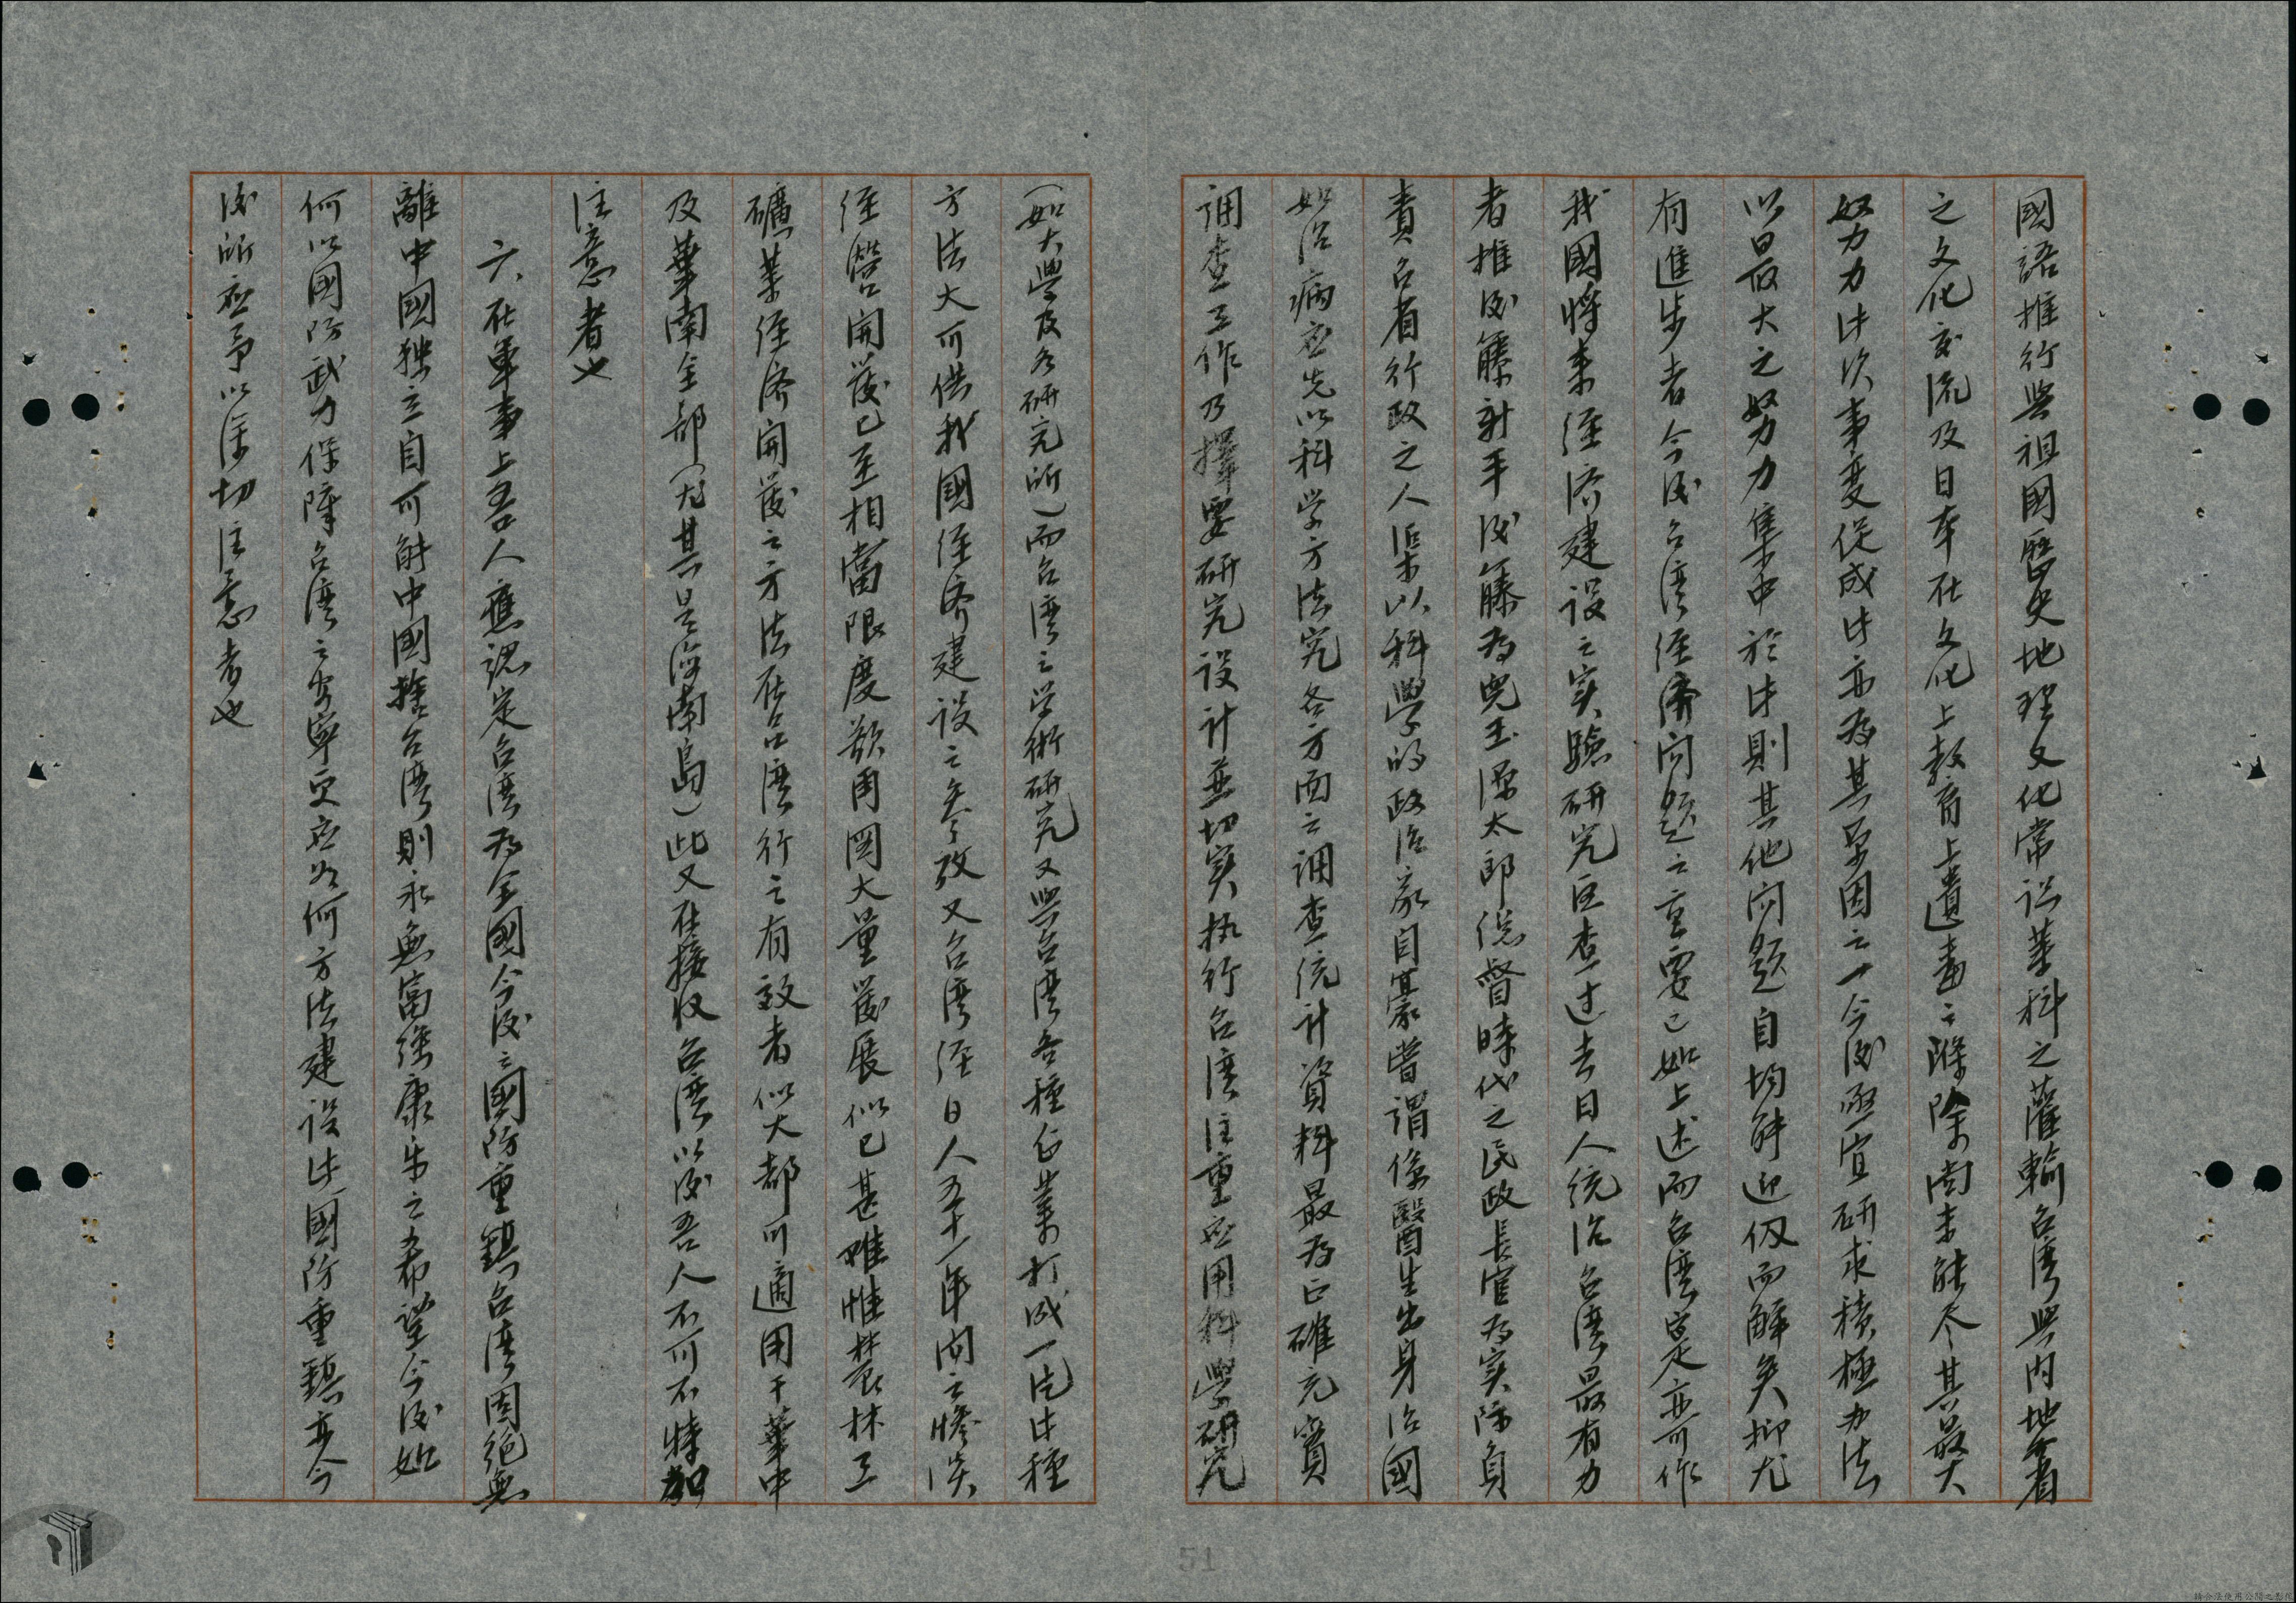 國語推行與祖國歷史地理文化常識業科之灌輸台湾與内地各省
之文化交流及日本在文化上教育上遺毒之滌除尚未能尽其最大
努力此次事变促成此亦为其原因之一今後亟宜研求積極办法
以最大之努力集中於此則其他问题自均能迎仭而解矣抑尤
有進步者今後台湾经濟问题之重要已如上述而台湾寔亦可作
我國将来经济建设之实驗研究区查过去日人统治台湾最有力
者推後籐新平後籐为兒玉源太郎总督時代之民政長官为实际負
責台省行政之人渠以科學的政治家自豪嘗谓係醫生出身治國
如治病应先以科学方法究各方面之调查统计資料最为正確充實
调查工作乃擇要研究设计並切实执行台湾注重应用科學研究
(如大學及各研究所)而台湾之学術研究又與台湾各種企業打成一片此種
方法大可供我國经济建设之参攷又台湾经日人五十一年间之惨淡
经營開發已至相當限度欲再圖大量發展似已甚难惟農林工
礦業经济開發之方法在台湾行之有效者似大都可適用于華中
及華南全部(尤其是海南島)此又在接收台湾以後吾人不可不特加
注意者也
六、在軍事上吾人應認定台湾为全國今後之國防重鎮台湾固絕無
離中國独立自可能中國捨台湾則永無富强康乐之希望今後如
何以國防武力保障台湾之安寧更应以何方法建设此國防重鎮亦今
後所应予以深切注意者也
51